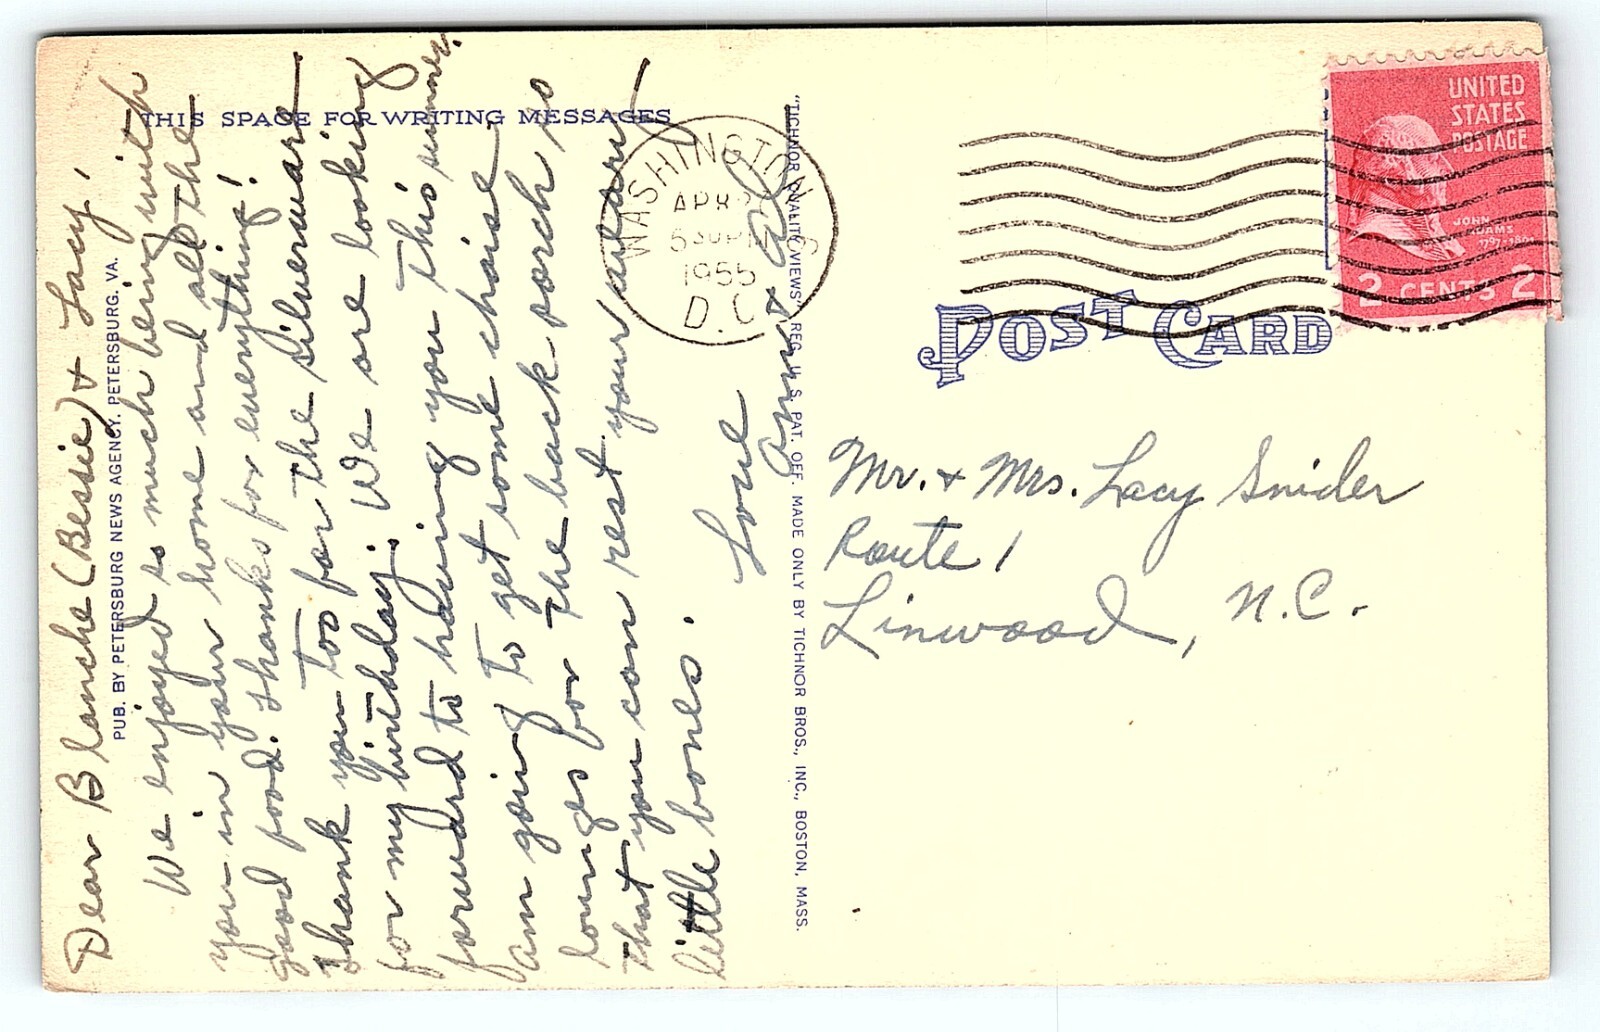 THIS SPACE FOR WRITING MESSAGES
Dear Blanche (Bessie) & Lacy,
We enjoyed so much being with
you in your home and all the
good food. Thanks for everything!
Thank you too for the silverware
for my birthday. We are looking
forward to having you this summer.
am going to get some chaise
lounges for the back porch so
that you can rest your
little bones.
Love
Ann & Al
PUB. BY PETERSBURG NEWS AGENCY, PETERSBURG, VA.
"TICHNOR QUALITY VIEWS" REG. U. S. PAT. OFF. MADE ONLY BY TICHNOR BROS., INC., BOSTON, MASS.
WASHINGTON
APR
5 30 PM
1955
D.C.
UNITED
STATES
POSTAGE
JOHN
ADAMS
1797-
2 CENTS 2
POST CARD
Mr. & Mrs. Lacy Snider
Route 1
Linwood, N.C.